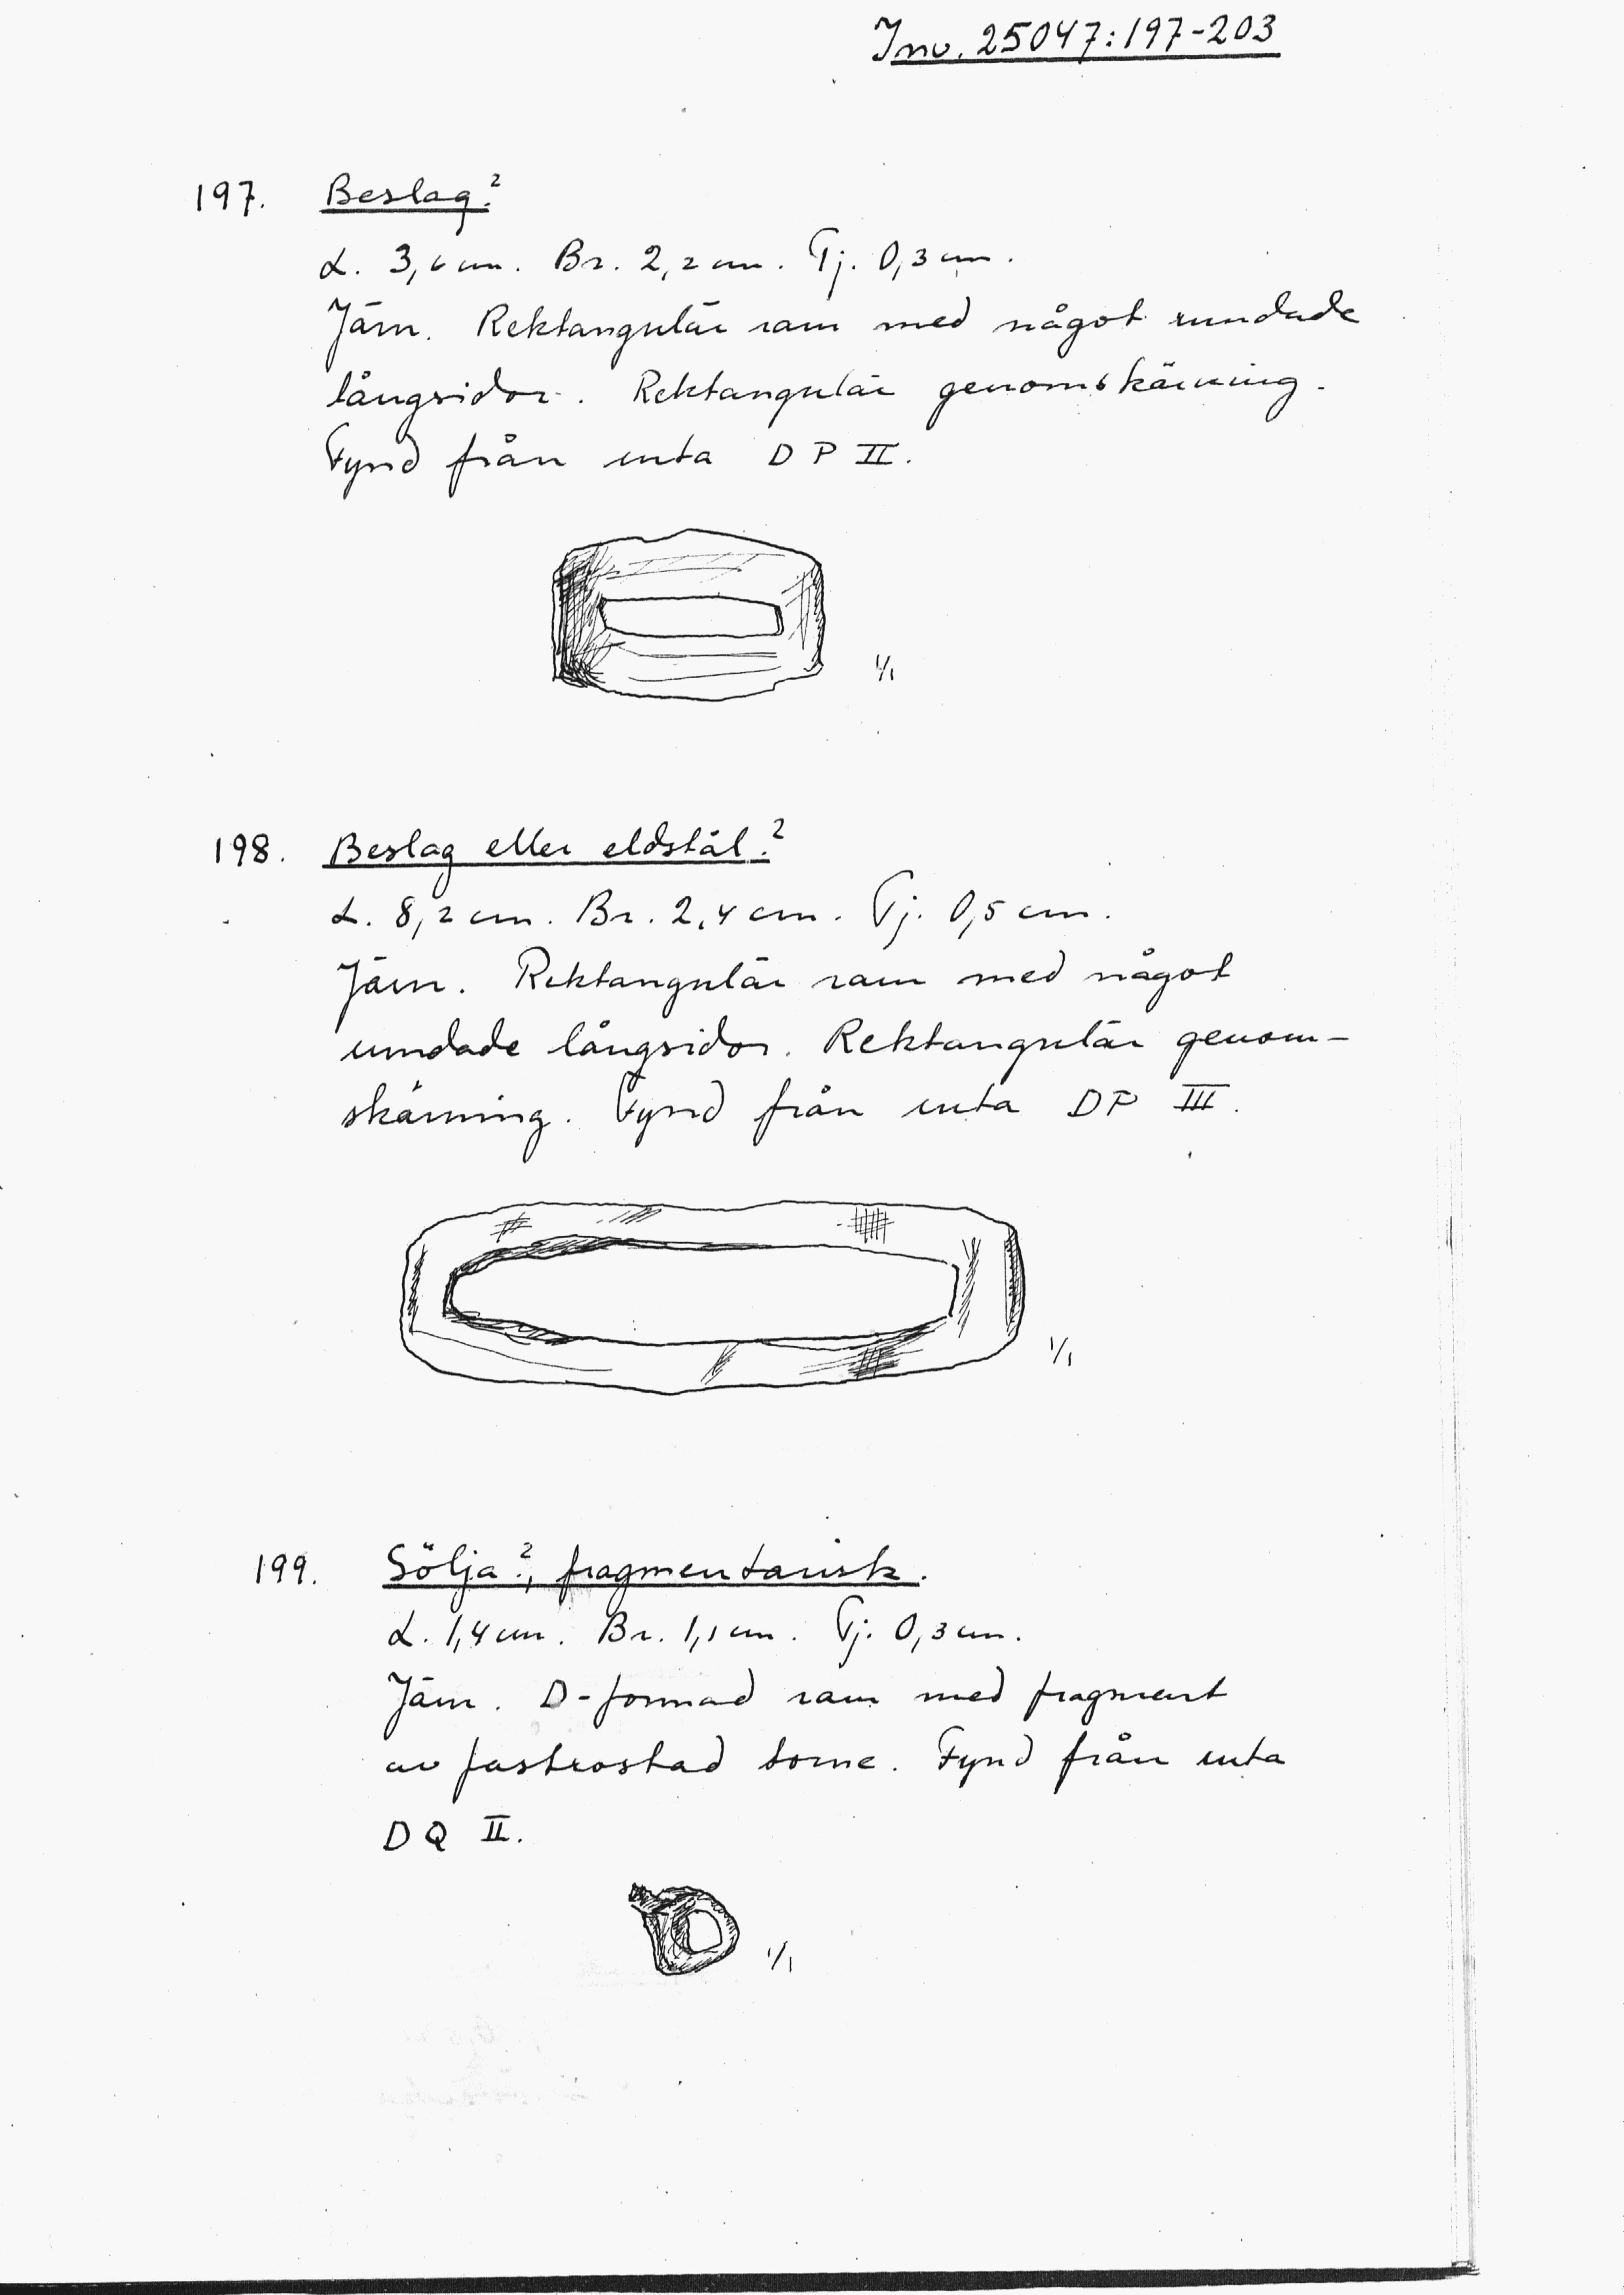 Inv. 25047:197-203
197. Beslag?
L. 3,6 cm. Br. 2,2 cm. Tj. 0,3 cm.
Järn. Rektangulär ram med något rundade
långsidor. Rektangulär genomskärning.
Fynd från ruta DP II.
1/1
198. Beslag eller eldstål?
L. 8,2 cm. Br. 2,4 cm. Tj. 0,5 cm.
Järn. Rektangulär ram med något
rundade långsidor. Rektangulär genom-
skärning. Fynd från ruta DP III.
1/1
199. Sölja?, fragmentarisk.
L. 1,4 cm. Br. 1,1 cm. Tj. 0,3 cm.
Järn. D-formad ram med fragment
av fastrostad torne. Fynd från ruta
DQ II.
1/1